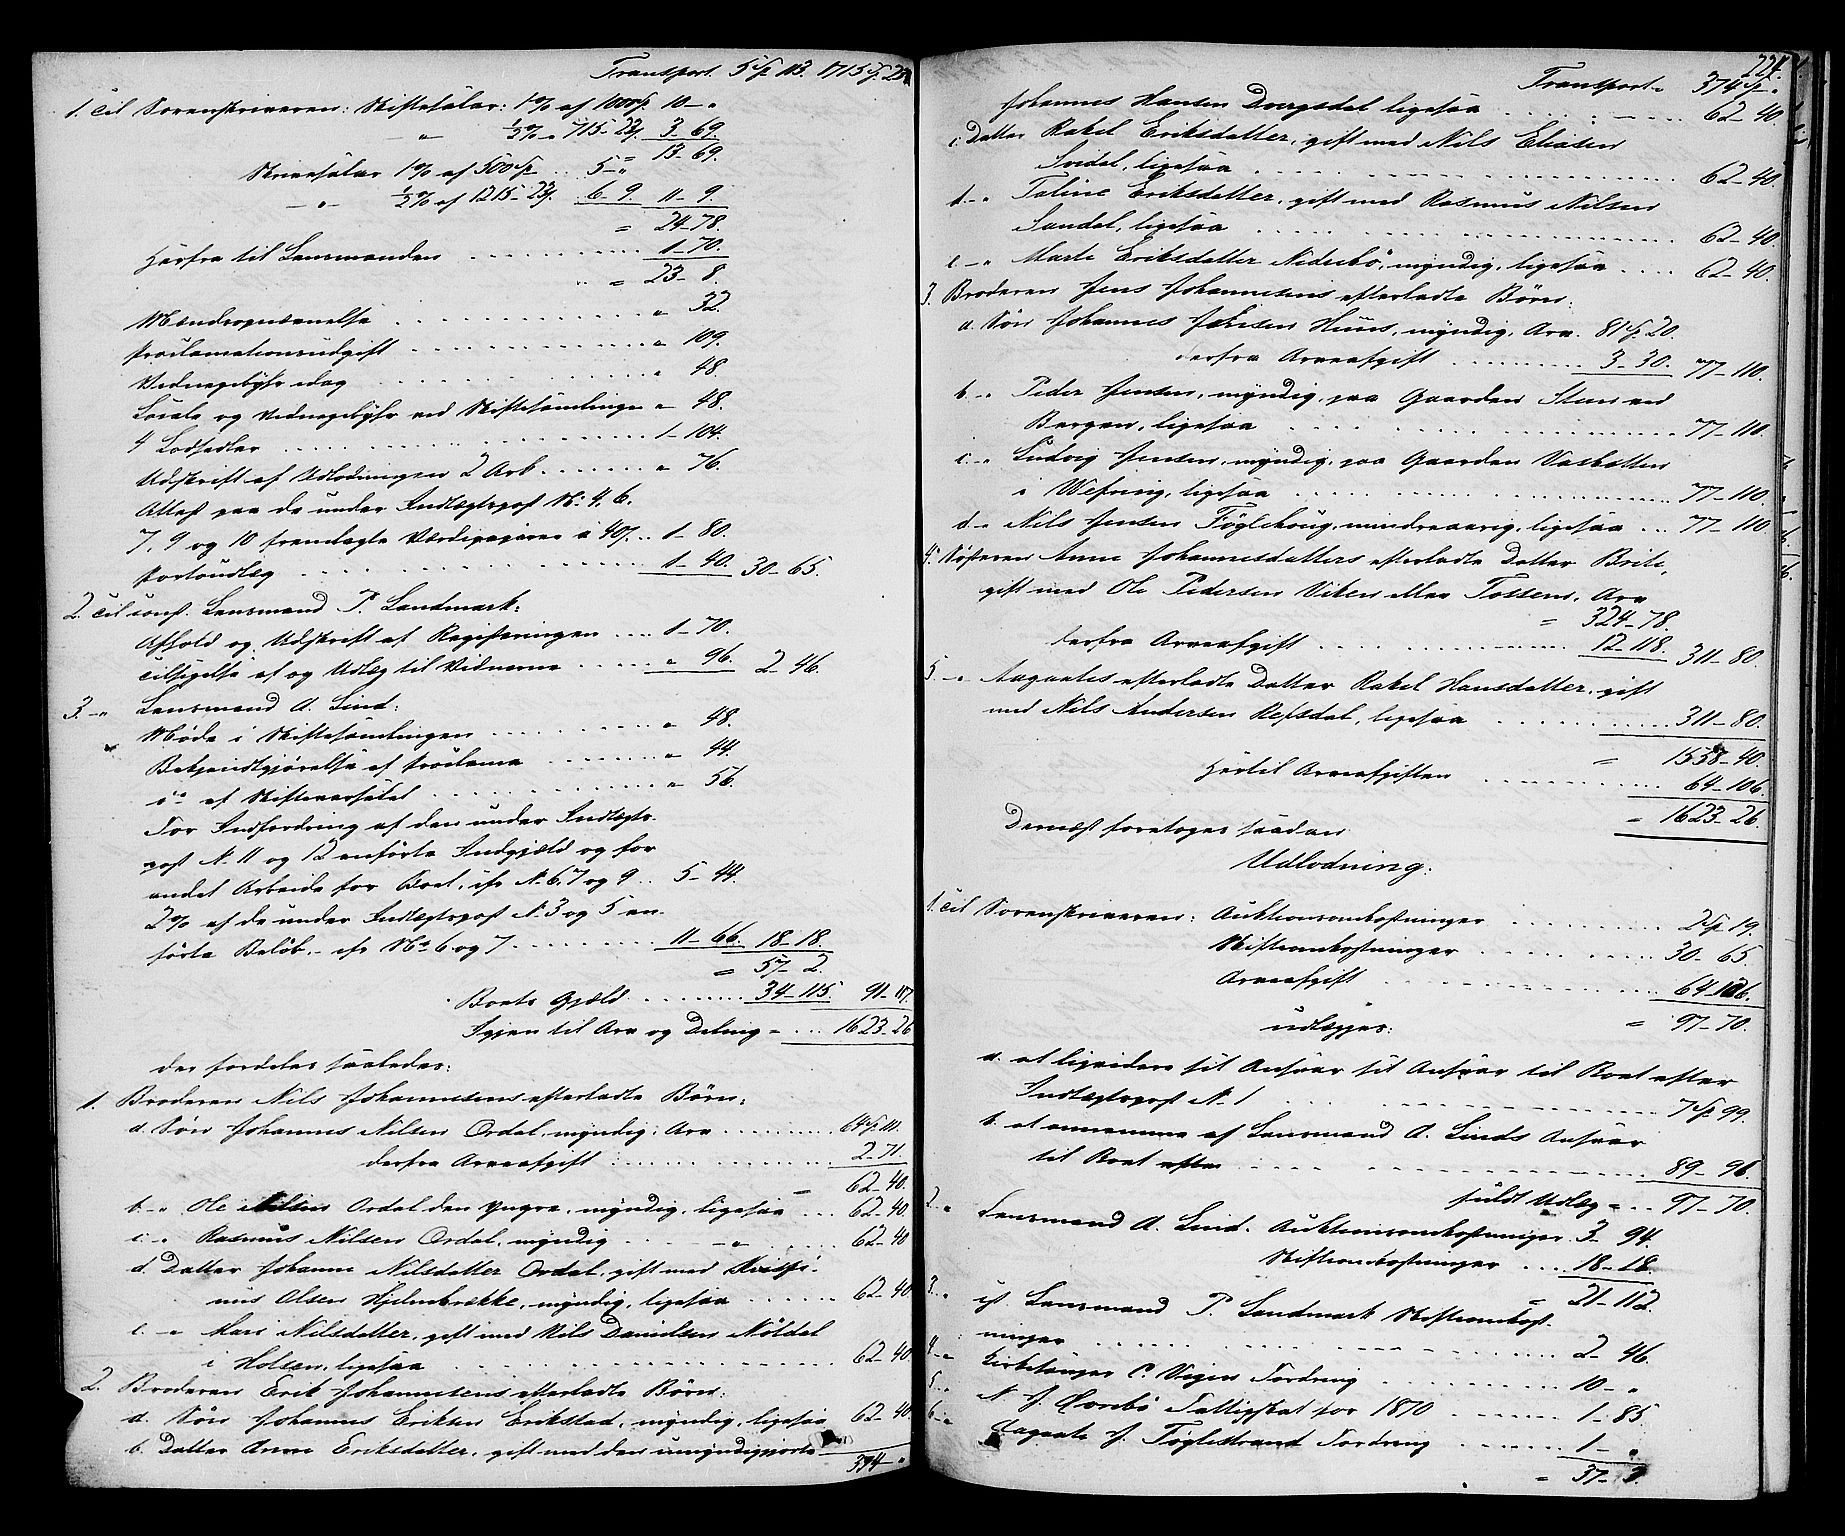 Transport. 5 Sp 113. 1715 Sp 23
1. Til Sorenskriveren: Skiftesalær: 1% af 1000 Sp. 10-"
-"- ½% " 715-23/. 3-69.
" 13-69.
Skriversalær 1% af 500 Sp ... 5-"
-"- ½% af 1215-23/. 6-9. 11-9.
= 24-78.
Herfra til Lensmanden . . . . 1-70.
" = 23-8.
Mændsopnævnelse . . . . " 32.
Proclamationsudgift . . . . " 109.
Vidnegebyhr idag . . . . " 48.
Locale og Vidnegebyhr ved Skiftesamlingen " 48.
4 Lodsedler . . . . 1-104.
Udskrift af Udlodningen 2 Ark . . . . " 76.
Attest paa de under Indtægtspost No. 4, 6.
7, 9 og 10 fremlagte Værdipapirer à 40/. .. 1-80.
Portoudlæg . . . . 1-40. 30-65.
2. Til const. Lensmand P. Landmark:
Afhold og Udskrift af Registreringen .... 1-70.
Tilsigelse af og Udlæg til Vidnerne . . . . " 96. 2-46.
3. -" Lensmand A. Lind:
Møde i Skiftesamlingen . . . . " 48.
Bekjendtgjørelse af Proclama . . . . " 44.
do af Skiftevarselet . . . . " 56.
For Indfordring af den under Indtægts-
post N. 11 og 12 anførte Indgjæld og for
andet Arbeide for Boet, cfr N. 6, 7 og 9 .. 5-44.
2% af de under Indtægtspost N. 3 og 5 an-
førte Beløb, - cfr No 6 og 7 . . . . 11-66. 18-18.
= 57-2.
Boets Gjæld . . . . 34-115. 91-117.
Igjen til Arv og Deling = ... 1623-26
der fordeles saaledes:
1. Broderen Nils Johannesens efterladte Børn:
a. Søn Johannes Nilsen Ordal, myndig, Arv . . . . 64 Sp. 111.
derfra Arveafgift . . . . 2-71.
= 62-40.
b. -" Ole Nilsen Ordal den yngre, myndig, ligesaa ... 62-40.
c. " Rasmus Nilsen Ordal, myndig . . . -"- . . . 62-40
d. Datter Johanne Nilsdatter Ordal, gift med Krispi-
nus Olsen Hjelmbrække, myndig, ligesaa . . . . 62-40.
e. -" Mari Nilsdatter, gift med Nils Danielsen Nøldal
i Holsen, ligesaa . . . . 62-40
2. Broderen Erik Johannesens efterladte Børn:
a. Søn Johannes Eriksen Erikstad, myndig, ligesaa 62-40
b. Datter Anne Eriksdatter, gift med den umyndiggjorte
374-"
224.
Transport " 374 Sp "
Johannes Hansen Dvergsdal ligesaa . . . . 62-40.
c. Datter Rakel Eriksdatter, gift med Nils Eliasen
Svidal, ligesaa . . . . 62-40.
d. -" Taline Eriksdatter, gift med Rasmus Nilsen
Sandal, ligesaa . . . . 62-40.
e. -" Marte Eriksdatter Nedrebø, myndig, ligesaa .... 62-40.
3. Broderen Jens Johannesens efterladte Børn:
a. Søn Johannes Jensen Huus, myndig, Arv. 81 Sp. 20.
derfra Arveafgift . . . . 3-30. 77-110.
b. -" Peder Jensen, myndig, paa Gaarden Steen ved
Bergen, ligesaa . . . . 77-110.
c. -" Ludvig Jensen, myndig, paa Gaarden Vasbotten
i Wefring, ligesaa . . . . 77-110.
d. -" Nils Jensen Føglehoug, mindreaarig, ligesaa ... 77-110.
4. Søsteren Anne Johannesdatters efterladte Datter Brite,
gift med Ole Pedersen Viken eller Fossen, Arv
= 324-78.
derfra Arveafgift . . . . 12-118. 311-80.
5 -" Aagaates efterladte Datter Rakel Hansdatter, gift
med Nils Andersen Refsdal, ligesaa . . . . 311-80.
= 1558-40.
Hertil Arveafgiften . . . . 64-106.
= 1623-26.
Dernæst foretoges saadan
Udlodning:
1. Til Sorenskriveren: Auktionsomkostninger . . . . 2 Sp 19.
Skifteomkostninger . . . . 30-65.
Arveafgift . . . . 64-106.
udlægges: = 97-70.
a. at liqvidere sit Ansvar til Ansvar til Boet efter
Indtægtspost N. 1 . . . . 7 Sp 99.
b. at annamme af Lensmand A. Linds Ansvar
til Boet efter . . . . 89-96.
fuldt Udlæg = .. 97-70.
2. " Lensmand A. Lind. Auktionsomkostninger. 3-94.
Skifteomkostninger . . . 18-18.
= 21-112.
3. " cst. Lensmand P. Landmark Skifteomkost-
ninger . . . . 2-46.
4. " Kirkesanger C. Vigen Fordring . . . . 10-"
5. " N. J. Øvrebø Fattigskat for 1870 . . . . 1-85.
6. " Aagaate J. Føglestrand Fordring . . . . 1-"
= 37-3.